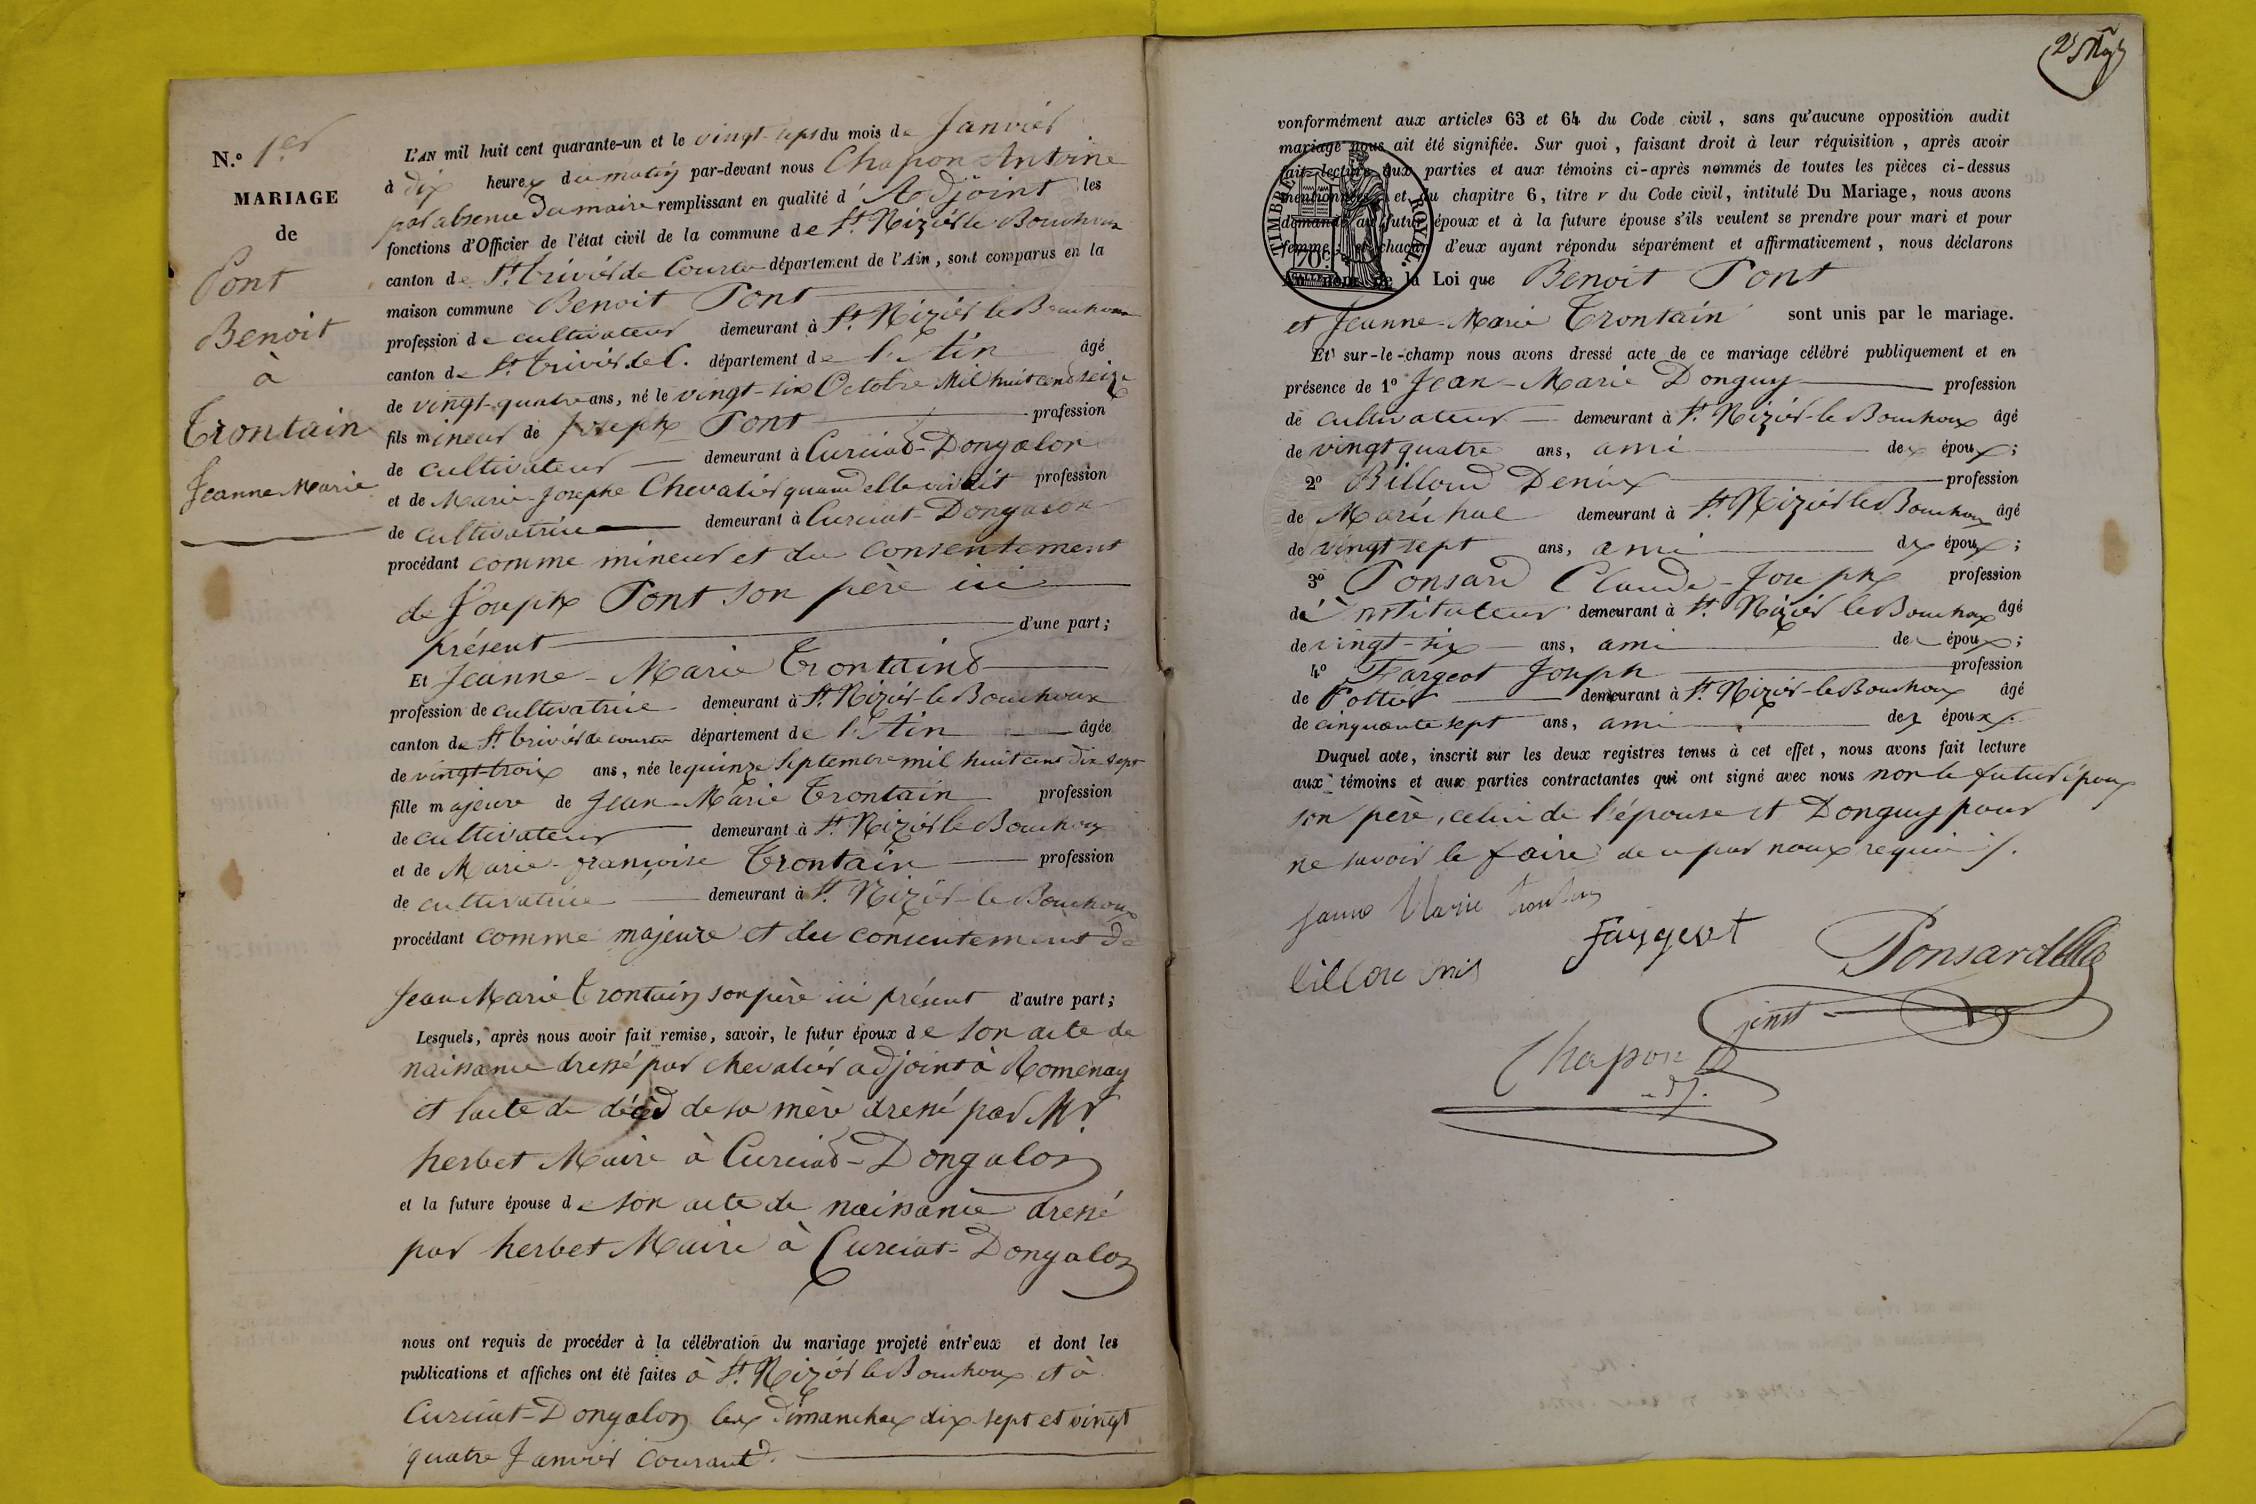 N.º 1.er
MARIAGE
de
Pont
Benoit
à
Trontain
Jeanne Marie
L'AN mil huit cent quarante-un et le vingt-sept du mois de Janvier
à dix heures du matin par-devant nous Chapon Antoine
par absence du maire remplissant en qualité d' Adjoint les
fonctions d'Officier de l'état civil de la commune de St. Nizier le Bouchoux
canton de St. Trivier de Courtes département de l'Ain, sont comparus en la
maison commune Benoit Pont
profession de cultivateur demeurant à St. Nizier le Bouchoux
canton de St. Trivier de C. département de l'Ain âgé
de vingt-quatre ans, né le vingt-six Octobre Mil huit cent seize
fils mineur de Joseph Pont profession
de cultivateur demeurant à Curciat-Dongalon
et de Marie-Josephe Chevalier quand elle vivait profession
de cultivatrice demeurant à Curciat-Dongalon
procédant comme mineur et du consentement
de Joseph Pont son père ici
présent d'une part;
Et Jeanne-Marie Trontaind
profession de cultivatrice demeurant à St. Nizier-le Bouchoux
canton de St. Trivier de courtes département de l'Ain âgée
de vingt-trois ans, née le quinze Septembre mil huit cent dix sept
fille majeure de Jean-Marie Trontain profession
de cultivateur demeurant à St. Nizier le Bouchoux
et de Marie-françoise Trontain profession
de cultivatrice demeurant à St. Nizier-le Bouchoux
procédant comme majeure et du consentement de
Jean Marie Trontain son père ici présent d'autre part;
Lesquels, après nous avoir fait remise, savoir, le futur époux de son acte de
naissance dressé par chevalier adjoint à Romenay
et l'acte de décd de sa mère dressé par Mr.
herbet Maire à Curciat-Dongalon
et la future épouse de son acte de naissance dressé
par herbet Maire à Curciat-Dongalon
nous ont requis de procéder à la célébration du mariage projeté entr'eux et dont les
publications et affiches ont été faites à St. Nizier le Bouchoux et à
Curciat-Dongalon les dimanches dix-sept et vingt
quatre Janvier courant.
conformément aux articles 63 et 64 du Code civil, sans qu'aucune opposition audit
mariage nous ait été signifiée. Sur quoi, faisant droit à leur réquisition, après avoir
fait lecture aux parties et aux témoins ci-après nommés de toutes les pièces ci-dessus
mentionnées et du chapitre 6, titre V du Code civil, intitulé Du Mariage, nous avons
demandé au futur époux et à la future épouse s'ils veulent se prendre pour mari et pour
femme; et chacun d'eux ayant répondu séparément et affirmativement, nous déclarons
au nom de la Loi que Benoit Pont
TIMBRE ROYAL
70c
et Jeanne-Marie Trontain sont unis par le mariage.
Et sur-le-champ nous avons dressé acte de ce mariage célébré publiquement et en
présence de 1º Jean-Marie Donguy profession
de cultivateur demeurant à St. Nizier-le Bouchoux âgé
de vingt quatre ans, ami des époux;
2º Billoud Denix profession
de Maréchal demeurant à St. Nizier le Bouchoux âgé
de vingt sept ans, ami des époux;
3º Ponsard Claude-Joseph profession
d'instituteur demeurant à St. Nizier le Bouchoux âgé
de vingt-six ans, ami des époux;
4º Fargeot Joseph profession
de Pottier demeurant à St. Nizier-le Bouchoux âgé
de cinquante sept ans, ami des époux.
Duquel acte, inscrit sur les deux registres tenus à cet effet, nous avons fait lecture
aux témoins et aux parties contractantes qui ont signé avec nous non le futur époux
son père, celui de l'épouse et Donguy pour
ne savoir le faire de ce par nous requis.
Janne Marie
Fargeot
Ponsard
Chapon